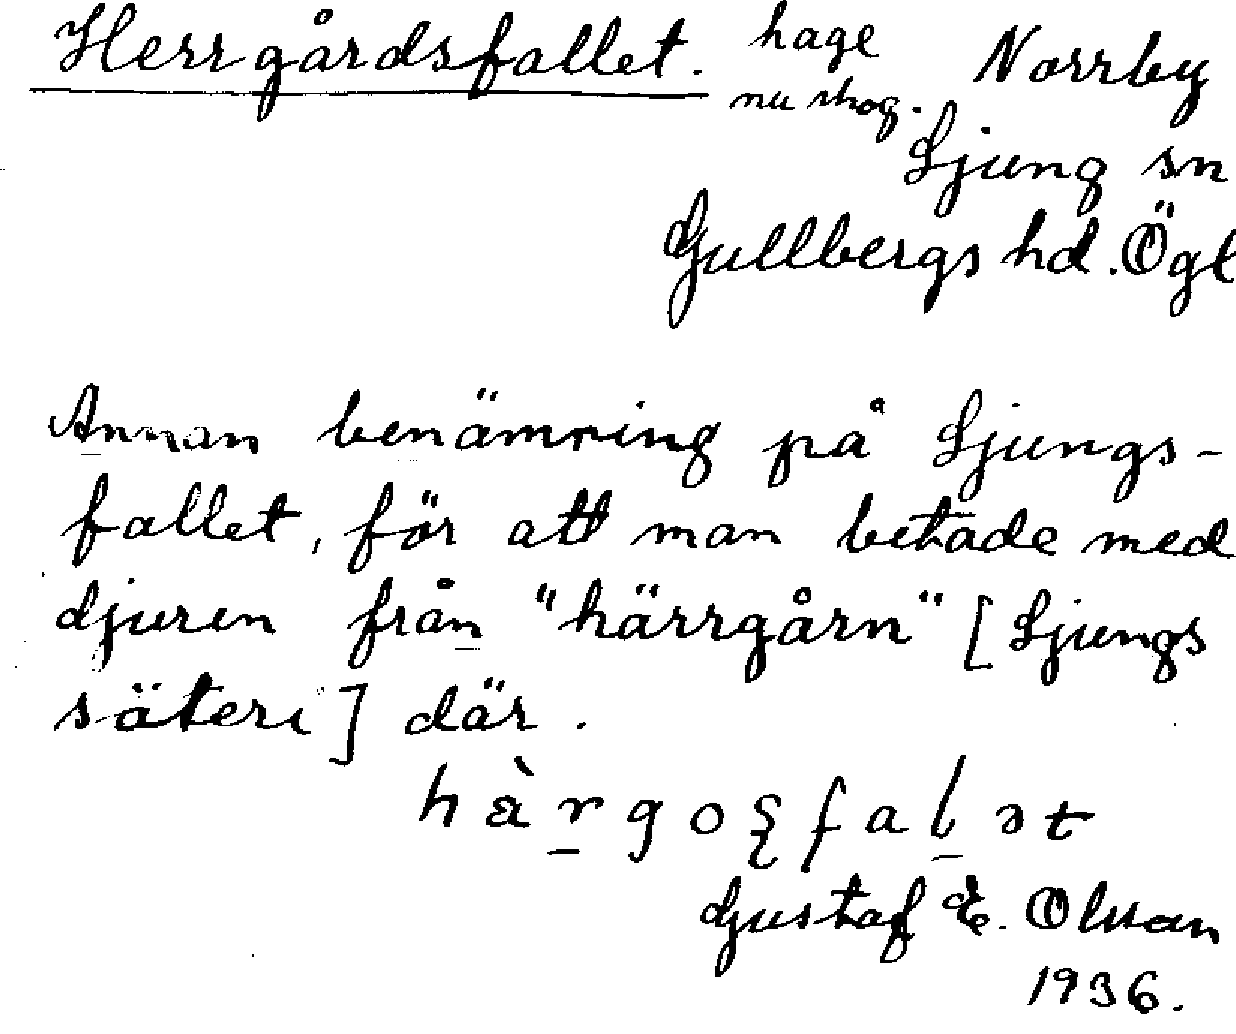 Herrgårdsfallet. hage Norrby
nu skog.
Ljung sn
Gullbergs hd. Ögl
Annan benämning på Ljungs-
fallet, för att man betade med
djuren från "härrgårn" [Ljungs
säteri] där.
Gustaf E. Olsson
1936.